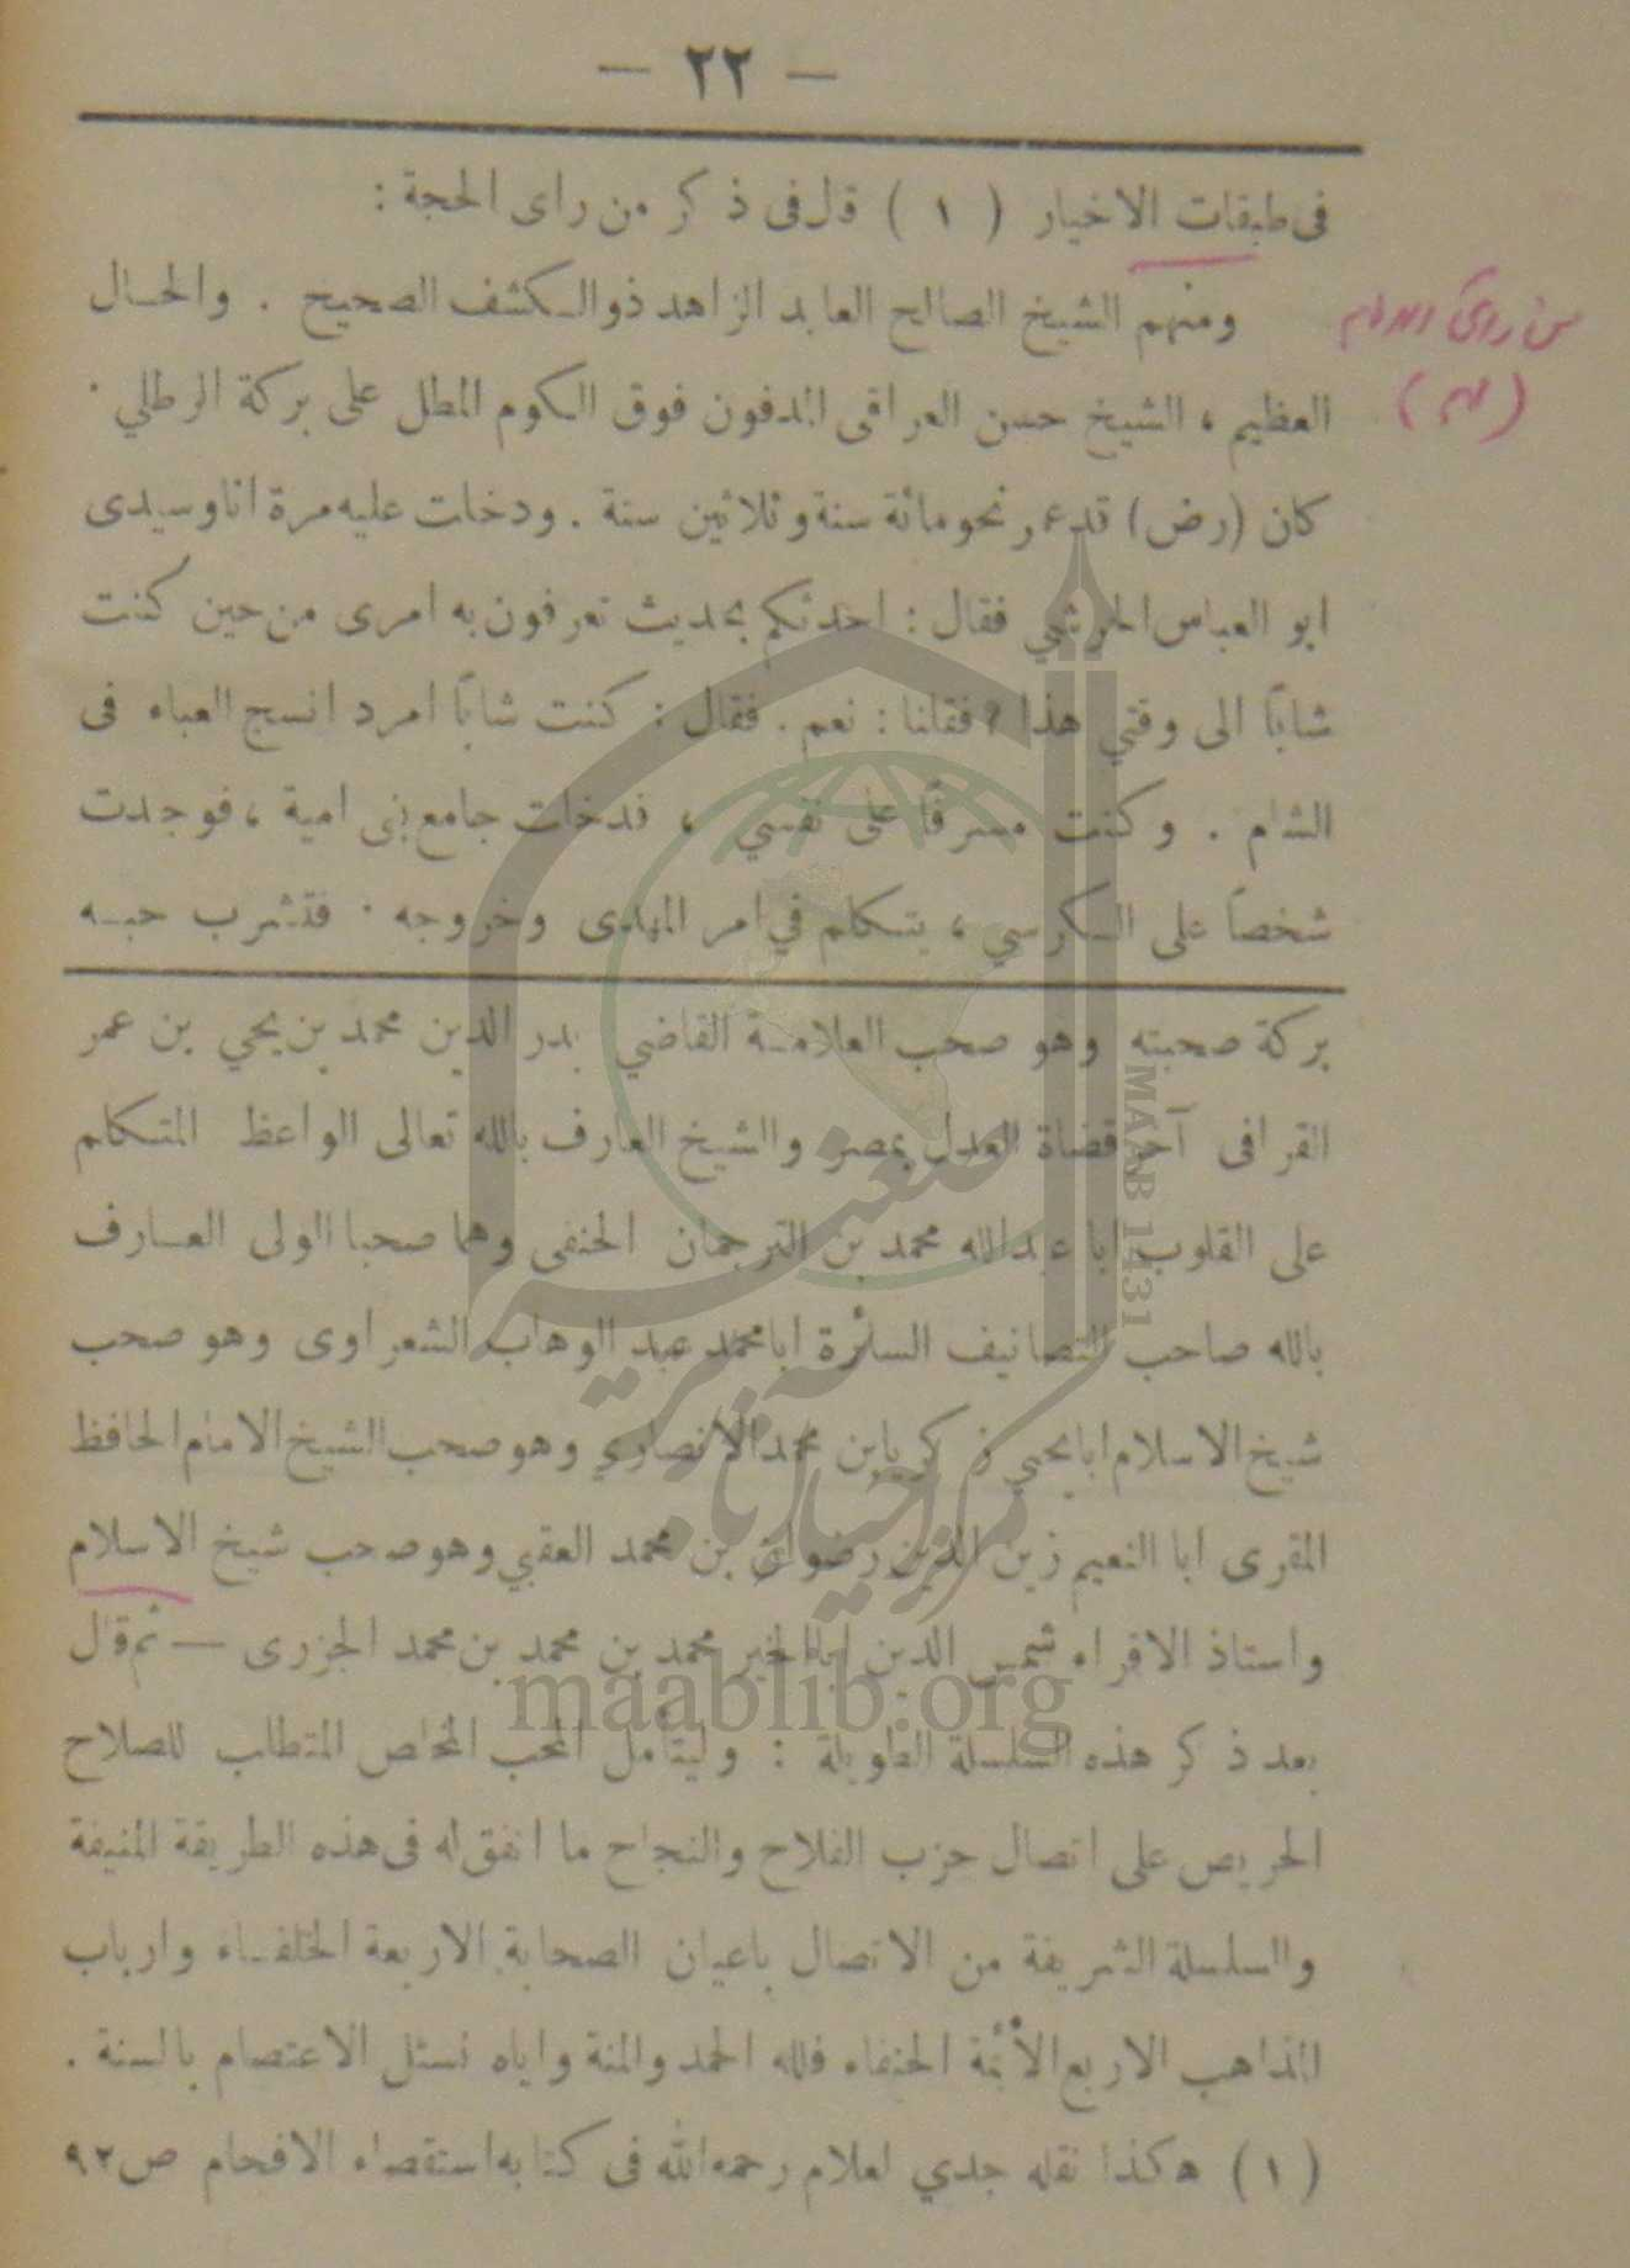 — ٢٢ —
فى طبقات الاخيار ( ١ ) قل فى ذكر من راى الحجة :
ومنهم الشيخ الصالح العابد الزاهد ذوالكشف الصحيح . والحال
العظيم ، الشيخ حسن العراقى المدفون فوق الكوم المطل على بركة الرطلي .
كان (رض) قدعمر نحومائة سنة وثلاثين سنة . ودخات عليه مرة انا وسيدى
ابو العباس الحرثي فقال : احدثكم بحديث تعرفون به امرى من حين كنت
شاباً الى وقتي هذا ؟ فقلنا : نعم . فقال : كنت شاباً امرد انسج العباء فى
الشام . وكنت مسرفاً على نفسي ، فدخات جامع بنى امية ، فوجدت
شخصاً على الكرسي ، يتكلم في امر المهدى وخروجه . فتشرب حبه
بركة صحبته وهو صحب العلامة القاضي بدر الدين محمد بن يحي بن عمر
القرافى آخر قضاة العدل بمصر والشيخ العارف بالله تعالى الواعظ المتكلم
على القلوب ابا عبدالله محمد بن الترجمان الحنفى وهما صحبا الولى العارف
بالله صاحب التصانيف السائرة ابا محمد عبد الوهاب الشعراوى وهو صحب
شيخ الاسلام ابا يحيى زكريا بن محمد الانصاري وهو صحب الشيخ الامام الحافظ
المقرى ابا النعيم زين الدين رضوان بن محمد العقبي وهو صحب شيخ الاسلام
واستاذ الاقراء شمس الدين ابا الخير محمد بن محمد بن محمد الجزرى — ثم قال
بعد ذكر هذه السلسلة الطويلة : وليتأمل المحب المخاص المتطلب للصلاح
الحريص على اتصال حزب الفلاح والنجاح ما اتفق له فى هذه الطريقة المنيفة
والسلسلة الشريفة من الاتصال باعيان الصحابة الاربعة الخلفاء وارباب
المذاهب الاربع الأئمة الحنفاء فلله الحمد والمنة واياه نسئل الاعتصام بالسنة .
( ١ ) هكذا نقله جدي لعلام رحمه الله فى كتابه استقصاء الافحام ص٩٢
من رأى
(مهم)
MAAB 1431
maablib.org